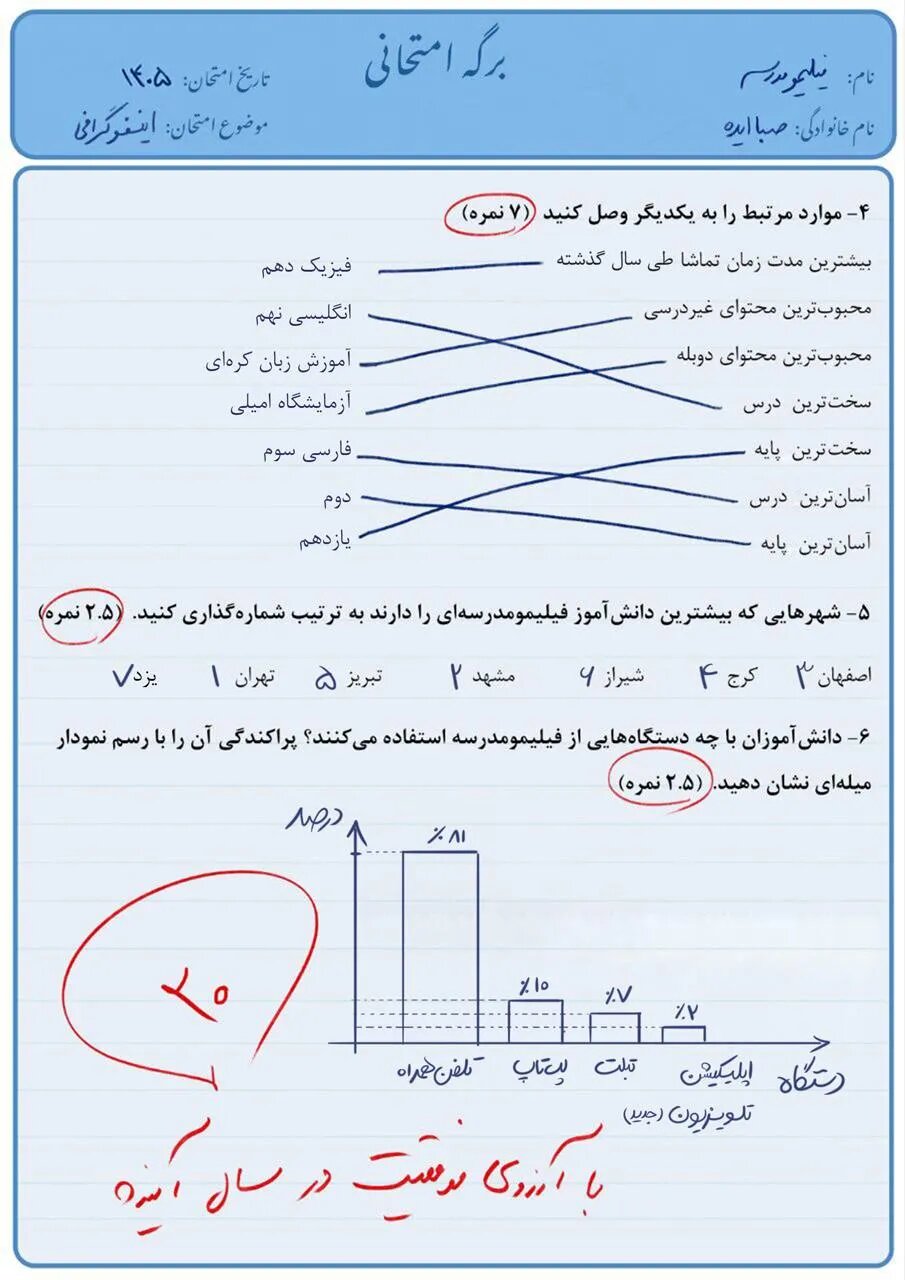 برگه امتحانی
نام: فیلیمومدرسه
تاریخ امتحان: ۱۴۰۵
نام خانوادگی: صبا ایده
موضوع امتحان: اینفوگرافی
۴- موارد مرتبط را به یکدیگر وصل کنید (۷ نمره)
بیشترین مدت زمان تماشا طی سال گذشته فیزیک دهم
محبوب‌ترین محتوای غیردرسی انگلیسی نهم
محبوب‌ترین محتوای دوبله آموزش زبان کره‌ای
سخت‌ترین درس آزمایشگاه امیلی
سخت‌ترین پایه فارسی سوم
آسان‌ترین درس دوم
آسان‌ترین پایه یازدهم
۵- شهرهایی که بیشترین دانش‌آموز فیلیمومدرسه‌ای را دارند به ترتیب شماره‌گذاری کنید. (۲.۵ نمره)
اصفهان ۳ کرج ۴ شیراز ۶ مشهد ۲ تبریز ۵ تهران ۱ یزد ۷
۶- دانش‌آموزان با چه دستگاه‌هایی از فیلیمومدرسه استفاده می‌کنند؟ پراکندگی آن را با رسم نمودار
میله‌ای نشان دهید. (۲.۵ نمره)
درصد
٪۸۱
٪۱۰
٪۷
٪۲
تلفن همراه لپ‌تاپ تبلت اپلیکیشن
تلویزیون (جدید)
دستگاه
۲۰
با آرزوی موفقیت در سال آینده